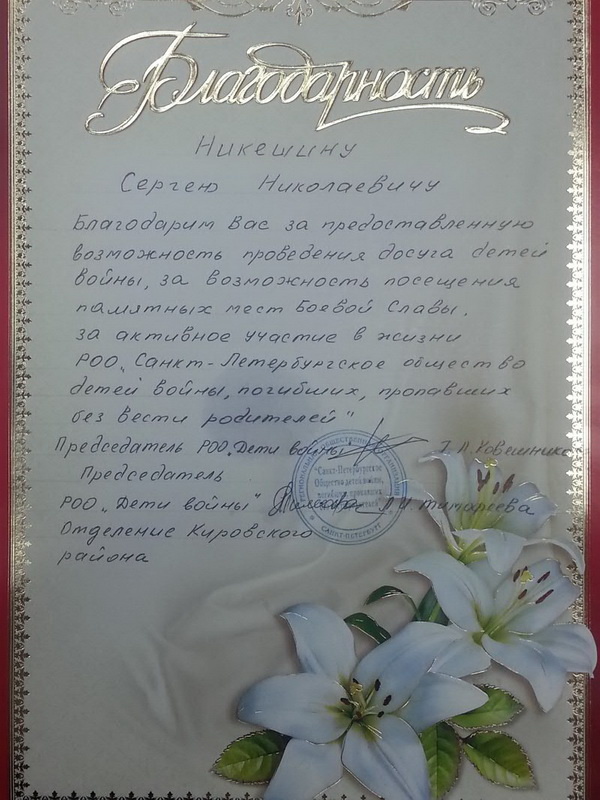 Благодарность
Никешину
Сергею Николаевичу
Благодарим Вас за предоставленную
возможность проведения досуга детей
войны, за возможность посещения
памятных мест Боевой Славы,
за активное участие в жизни
РОО „Санкт-Петербургское общество
детей войны, погибших, пропавших
без вести родителей"
Председатель РОО „Дети войны
Председатель
РОО „Дети войны"
Отделение Кировского
района
"Санкт-Петербургское
Общество детей войны,
САНКТ-ПЕТЕРБУРГ